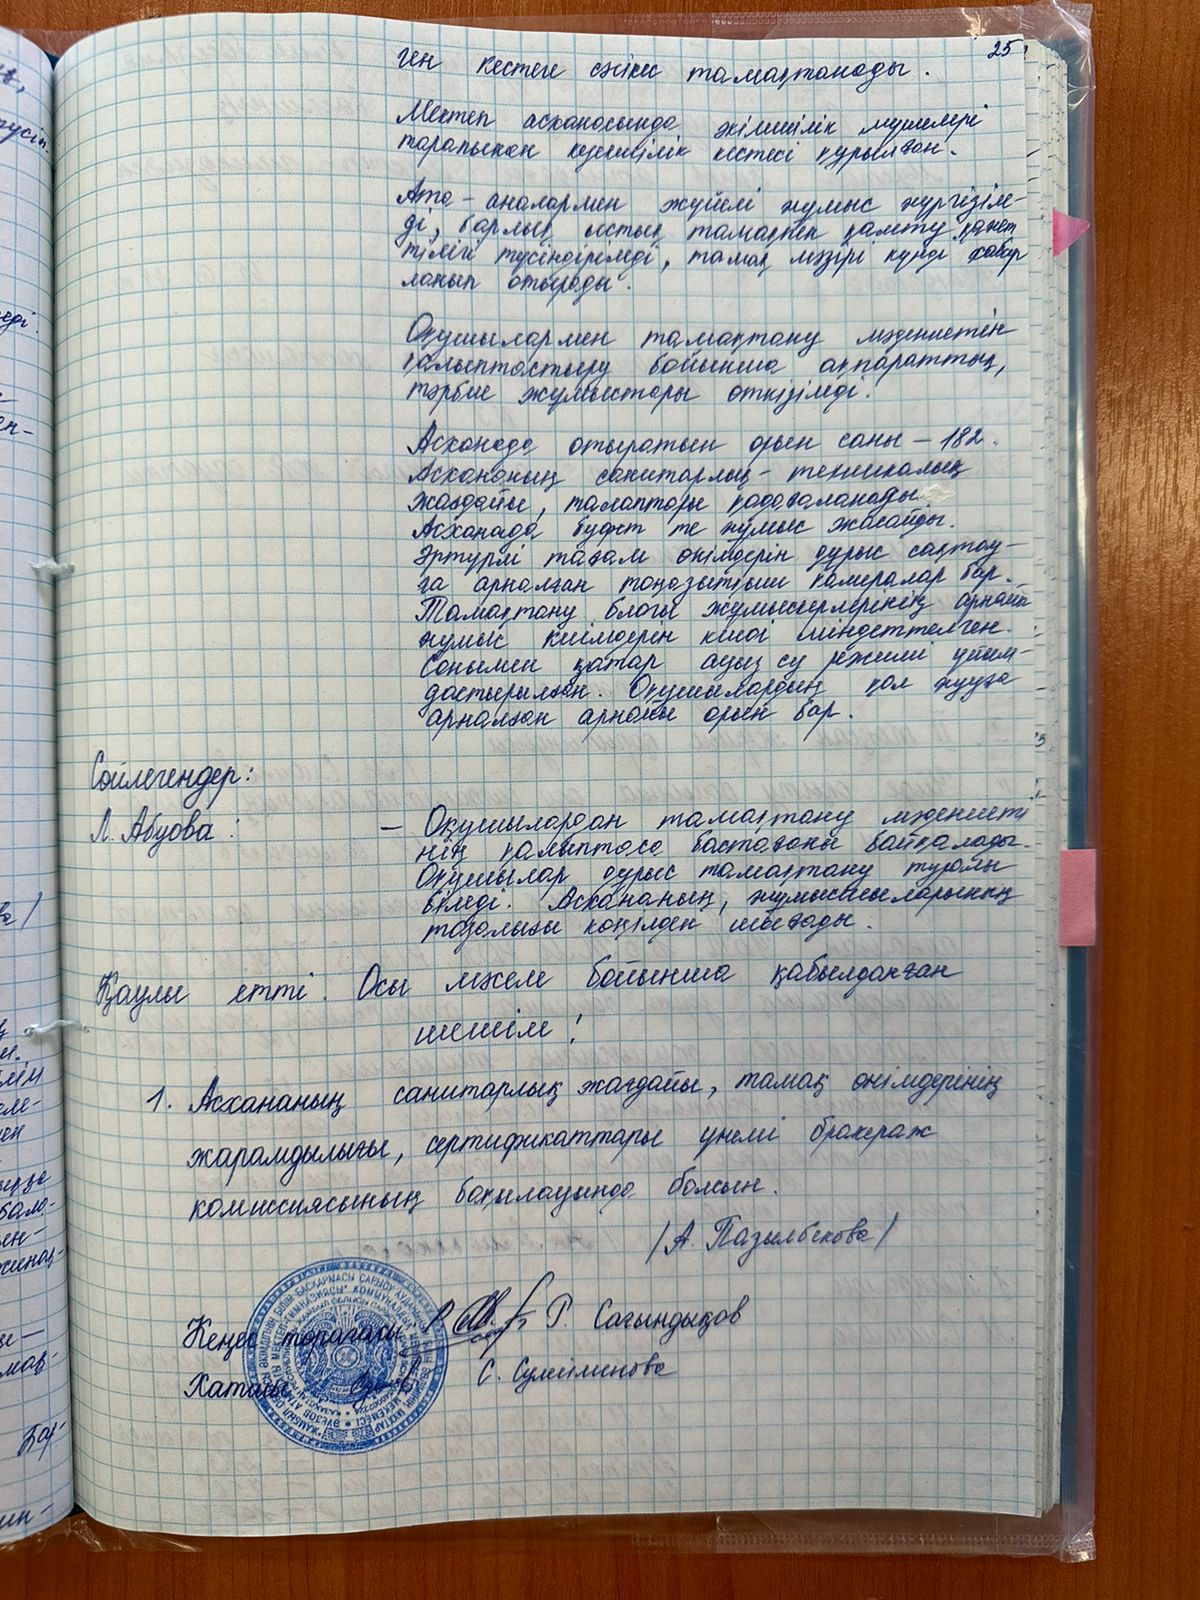 25
ген кестеге сәйкес тамақтанады.
Мектеп асханасында әкімшілік мүшелері
тарапынан кезекшілік кестесі құрылған.
Ата-аналармен жүйелі жұмыс жүргізіл-
ді, барлық ыстық тамақпен қамту қажет
тілігі түсіндірілді, тамақ мәзірі күнде хабар
ланып отырады.
Оқушылармен тамақтану мәдениетін
қалыптастыру бойынша ақпараттық,
тәрбие жұмыстары өткізілді.
Асханада отыратын орын саны - 182.
Асхананың санитарлық-техникалық
жағдайы, талаптары қадағаланады
Асханада буфет те жұмыс жасайды.
Әртүрлі тағам өнімдерін дұрыс сақтау-
ға арналған тоңазытқыш камералар бар.
Тамақтану блогы жұмыскерлерінің арнайы
жұмыс киімдерін киюі міндеттелген.
Сонымен қатар ауыз су режимі ұйым-
дастырылған. Оқушылардың қол жууға
арналған арнайы орын бар.
Сөйлегендер:
Л. Абуова: - Оқушылардан тамақтану мәдениеті
нің қалыптаса бастағаны байқалады.
Оқушылар дұрыс тамақтану туралы
біледі. Асхананың, жұмысшыларының
тазалығы көңілден шығады.
Қаулы етті. Осы мәселе бойынша қабылданған
шешім!
1. Асхананың санитарлық жағдайы, тамақ өнімдерінің
жарамдылығы, сертификаттары үнемі бракераж
комиссиясының бақылауында болсын.
/А. Пазылбекова/
Кеңес төрағасы Р. Сағындықов
Хатшы С. Сулейменова